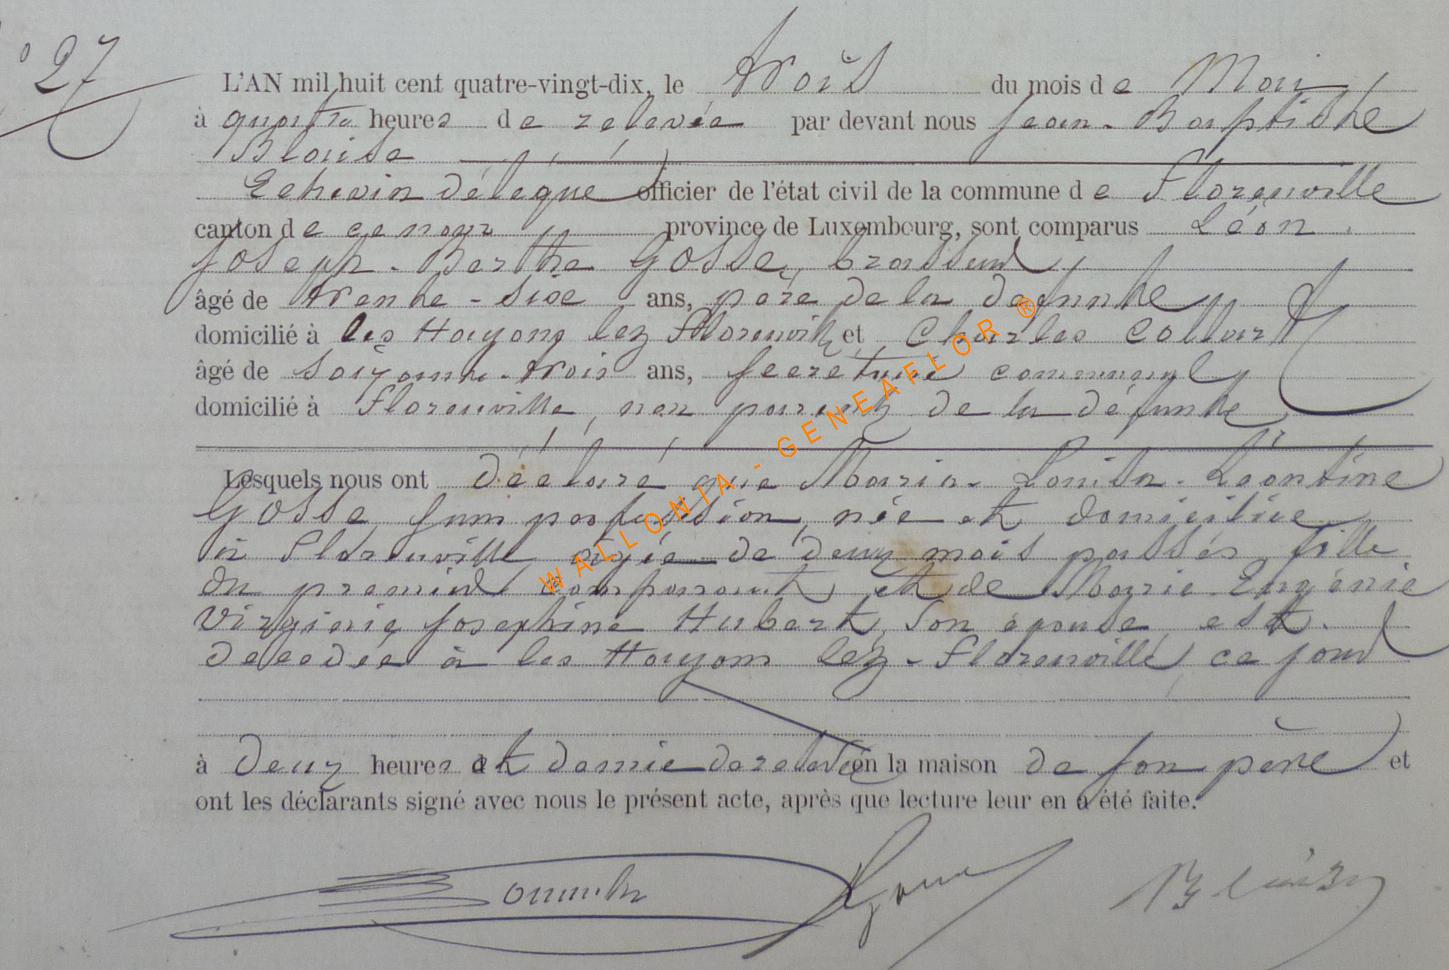 N° 27
L'AN mil huit cent quatre-vingt-dix, le trois du mois de Mai
à quatre heures de relevée par devant nous Jean-Baptiste
Blaise
Echevin délégué officier de l'état civil de la commune de Florenville
canton de ce nom province de Luxembourg, sont comparus Léon
Joseph-Berthe Gosse, brasseur,
âgé de trente-six ans, père de la défunte,
domicilié à les Hayons lez Florenville et Charles Collart
âgé de soixante-trois ans, secrétaire communal,
domicilié à Florenville, non parent de la défunte,
Lesquels nous ont déclaré que Maria-Louisa-Léontine
Gosse sans profession, née et domiciliée
à Florenville âgée de deux mois passés, fille
du premier comparant, et de Marie-Eugénie
Virginie Josephine Hubert, son épouse, est
décédée à les Hayons lez-Florenville, ce jour
à deux heures et demie de relevée en la maison de son père et
ont les déclarants signé avec nous le présent acte, après que lecture leur en a été faite.
WALLONIA - GENEAFLOR ®